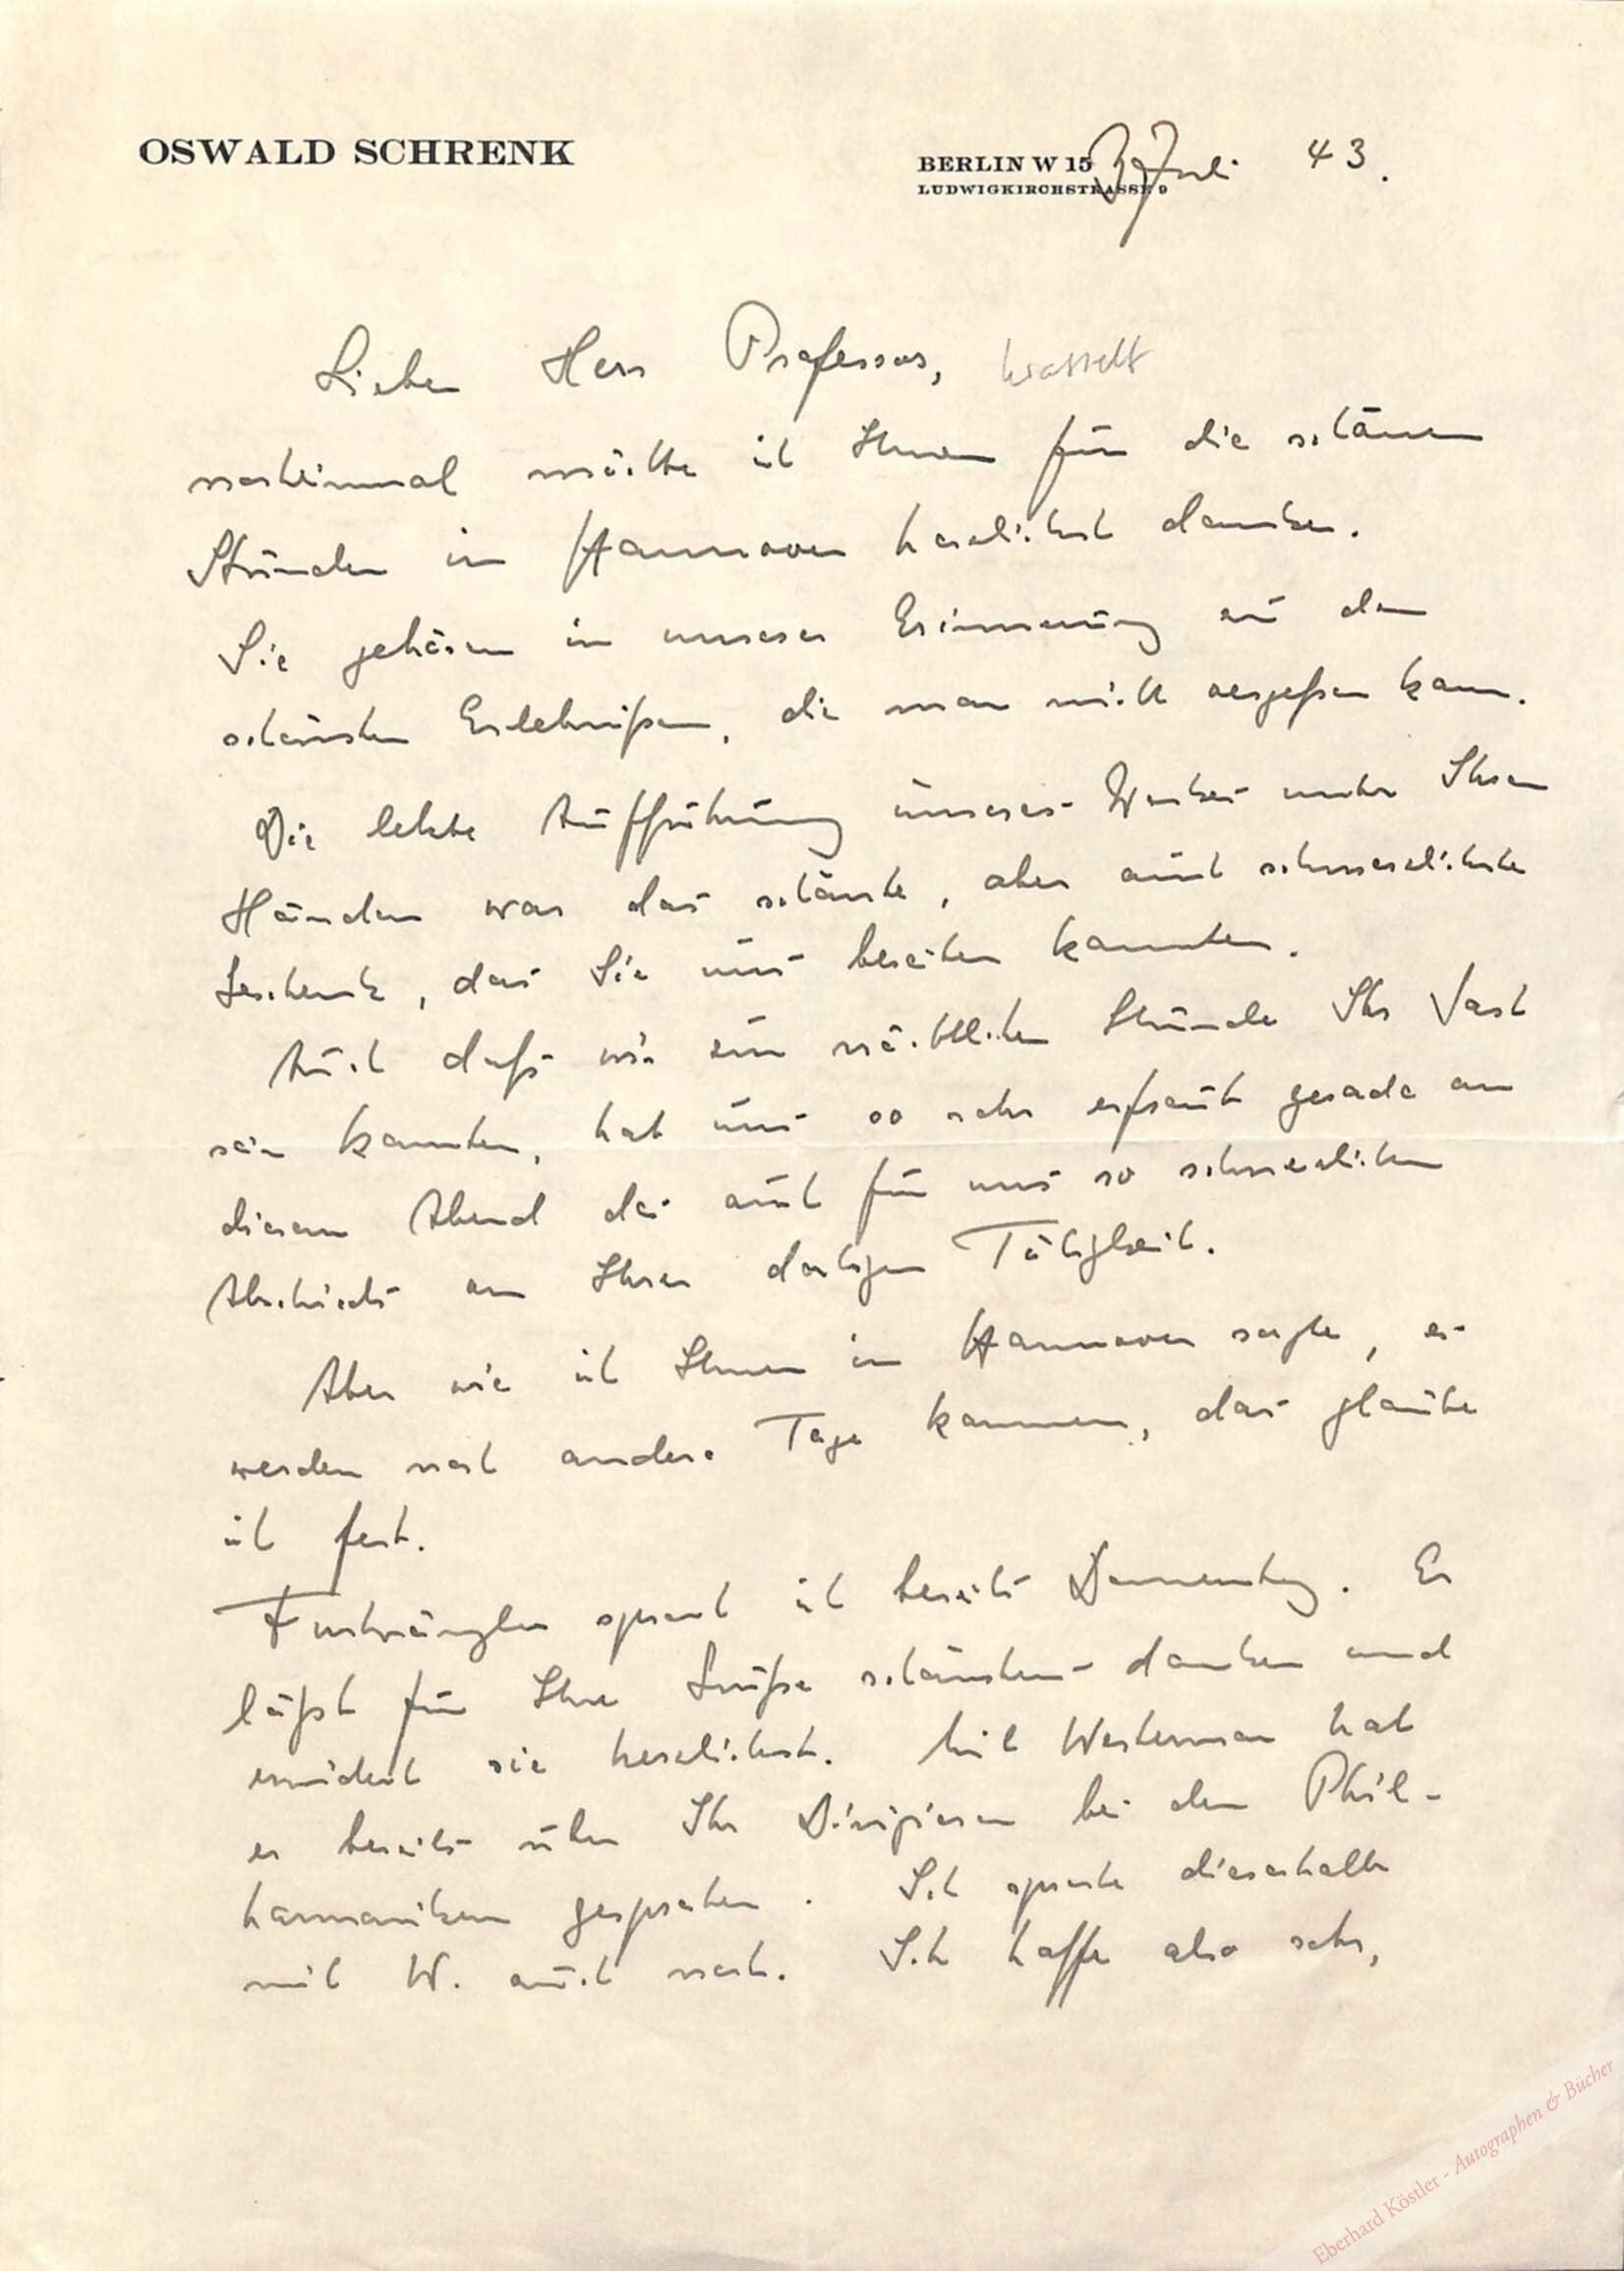 OSWALD SCHRENK
BERLIN W 15
LUDWIGKIRCHSTRASSE 9
3. Juli 43.
Lieber Herr Professor, Krasselt
nocheinmal möchte ich Ihnen für die schönen
Stunden in Hannover herzlichst danken.
Sie gehören in unserer Erinnerung zu den
schönsten Erlebnißen, die man nicht vergeßen kann.
Die letzte Aufführung unseres Werkes unter Ihren
Händen war das schönste, aber auch schmerzlichste
Geschenk, das Sie uns bereiten konnten.
Auch daß wir zur nächtlichen Stunde Ihr Gast
sein konnten, hat uns so sehr erfreut gerade an
diesem Abend des auch für uns so schmerzlichen
Abschieds von Ihrer dortigen Tätigkeit.
Aber wie ich Ihnen in Hannover sagte, es
werden noch andere Tage kommen, das glaube
ich fest.
Furtwängler sprach ich bereits Donnerstag. Er
läßt für Ihre Grüße schönstens danken und
erwidert sie herzlichst. Mit Westerman hat
er bereits über Ihr Dirigieren bei den Phil-
harmonikern gesprochen. Ich spreche dieserhalb
mit W. auch noch. Ich hoffe also sehr,
Eberhard Köstler - Autographen & Bücher